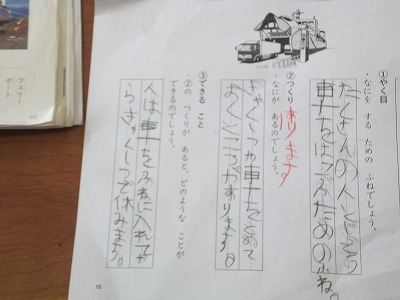 ①やく目
・なにを する ための ふねでしょう。
たくさんの人とじどう
車をはこぶためのふね。
②つくり
・なにが あるのでしょう。
あります
きゃくしつか車をとめて
おくところがあります。
③できる こと
・②の つくりが あると、どのような ことが
できるのでしょう。
人は車をふねに入れてか
らきゃくしつで休みます。
16
フェリー
ボート